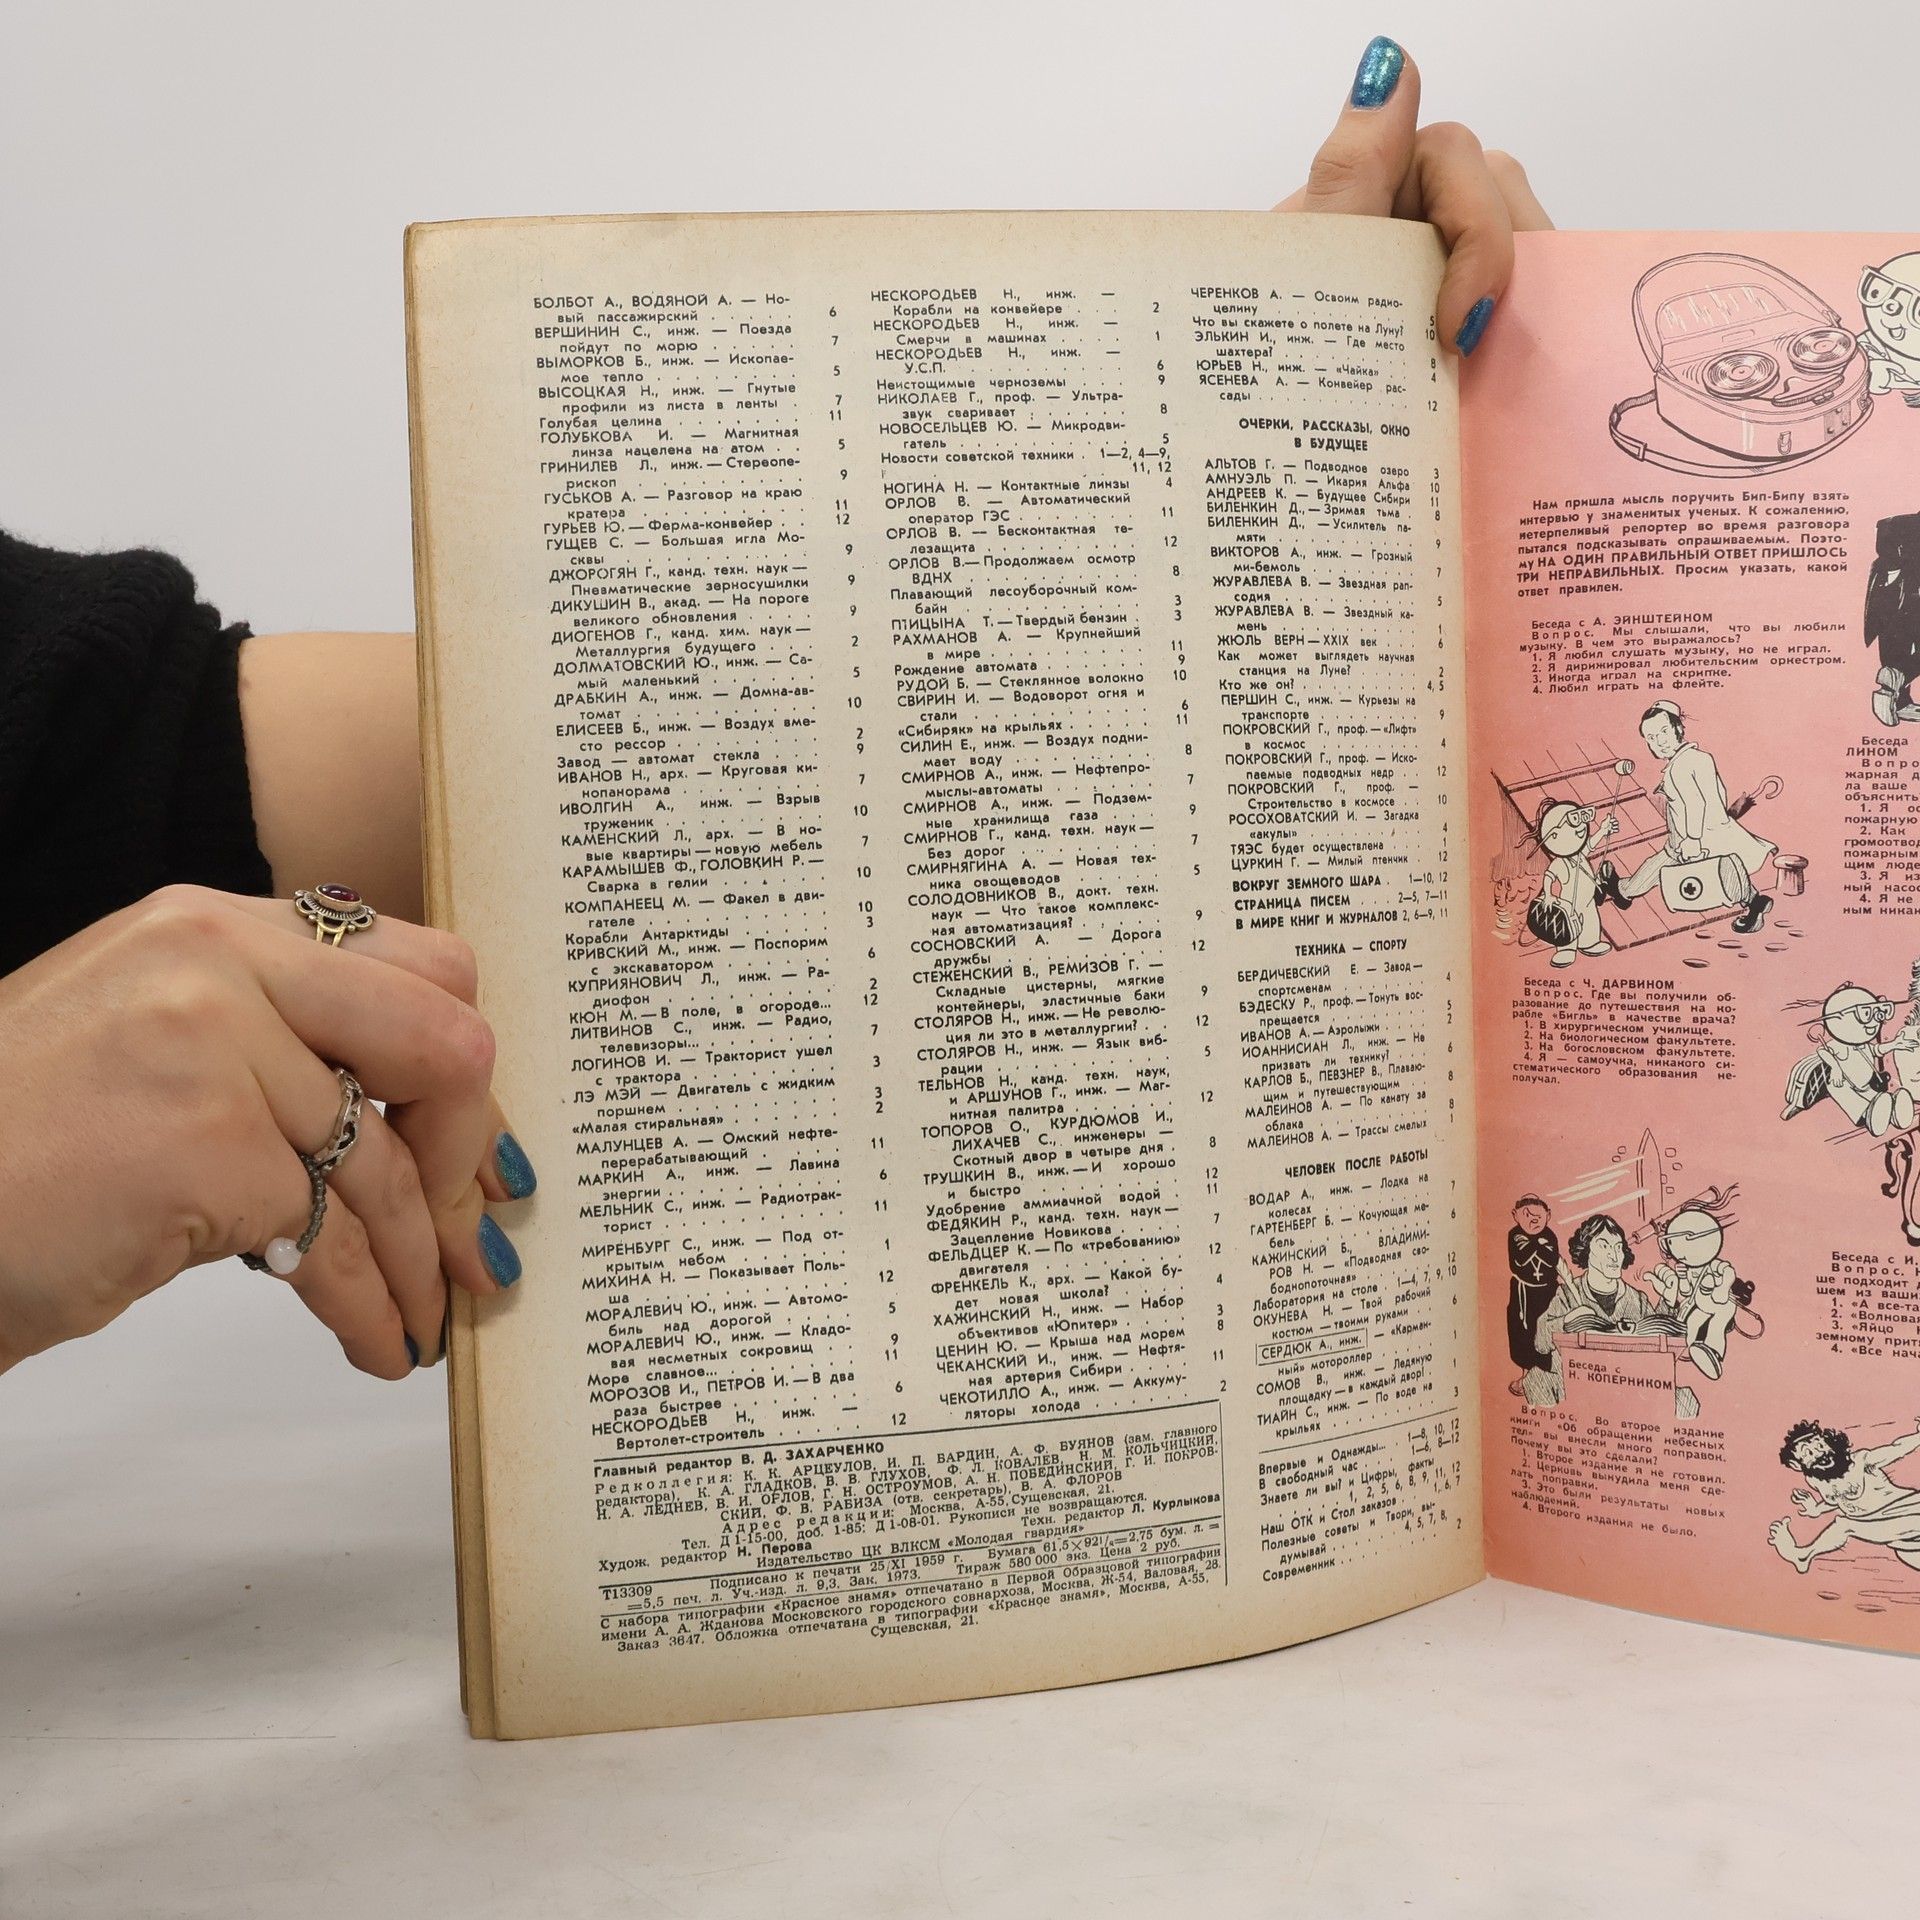 БОЛБОТ А., ВОДЯНОЙ А. — Но-
вый пассажирский . . . . . 6
ВЕРШИНИН С., инж. — Поезда
пойдут по морю . . . . . 7
ВЫМОРКОВ Б., инж. — Ископае-
мое тепло . . . . . 5
ВЫСОЦКАЯ Н., инж. — Гнутые
профили из листа в ленты . 7
Голубая целина . . . . . 11
ГОЛУБКОВА И. — Магнитная
линза нацелена на атом . . 5
ГРИНИЛЕВ Л., инж. — Стереопе-
рископ . . . . . 9
ГУСЬКОВ А. — Разговор на краю
кратера . . . . . 11
ГУРЬЕВ Ю. — Ферма-конвейер . . 12
ГУЩЕВ С. — Большая игла Мо-
сквы . . . . . 9
ДЖОРОГЯН Г., канд. техн. наук —
Пневматические зерносушилки 9
ДИКУШИН В., акад. — На пороге
великого обновления . . . . 9
ДИОГЕНОВ Г., канд. хим. наук —
Металлургия будущего . . . 2
ДОЛМАТОВСКИЙ Ю., инж. — Са-
мый маленький . . . . . 5
ДРАБКИН А., инж. — Домна-ав-
томат . . . . . 10
ЕЛИСЕЕВ Б., инж. — Воздух вме-
сто рессор . . . . . 2
Завод — автомат стекла . . . 9
ИВАНОВ Н., арх. — Круговая ки-
нопанорама . . . . . 7
ИВОЛГИН А., инж. — Взрыв
труженик . . . . . 10
КАМЕНСКИЙ Л., арх. — В но-
вые квартиры — новую мебель 7
КАРАМЫШЕВ Ф., ГОЛОВКИН Р. —
Сварка в гелии . . . . . 10
КОМПАНЕЕЦ М. — Факел в дви-
гателе . . . . . 10
Корабли Антарктиды . . . . . 3
КРИВСКИЙ М., инж. — Поспорим
с экскаватором . . . . . 6
КУПРИЯНОВИЧ Л., инж. — Ра-
диофон . . . . . 2
КЮН М. — В поле, в огороде... 12
ЛИТВИНОВ С., инж. — Радио,
телевизоры... . . . . . 7
ЛОГИНОВ И. — Тракторист ушел
с трактора . . . . . 3
ЛЭ МЭЙ — Двигатель с жидким
поршнем . . . . . 3
«Малая стиральная» . . . . . 2
МАЛУНЦЕВ А. — Омский нефте-
перерабатывающий . . . . . 11
МАРКИН А., инж. — Лавина
энергии . . . . . 6
МЕЛЬНИК С., инж. — Радиотрак-
торист . . . . . 11
МИРЕНБУРГ С., инж. — Под от-
крытым небом . . . . . 1
МИХИНА Н. — Показывает Поль-
ша . . . . . 12
МОРАЛЕВИЧ Ю., инж. — Автомо-
биль над дорогой . . . . . 5
МОРАЛЕВИЧ Ю., инж. — Кладо-
вая несметных сокровищ . . 9
Море славное... . . . . . 11
МОРОЗОВ И., ПЕТРОВ И. — В два
раза быстрее . . . . . 6
НЕСКОРОДЬЕВ Н., инж. —
Вертолет-строитель . . . . . 12
НЕСКОРОДЬЕВ Н., инж. —
Корабли на конвейере . . . 2
НЕСКОРОДЬЕВ Н., инж. —
Смерчи в машинах . . . . 1
НЕСКОРОДЬЕВ Н., инж. —
У.С.П. . . . . . 6
Неистощимые черноземы . . . 9
НИКОЛАЕВ Г., проф. — Ультра-
звук сваривает . . . . . 8
НОВОСЕЛЬЦЕВ Ю. — Микродви-
гатель . . . . . 5
Новости советской техники . 1—2, 4—9,
11, 12
НОГИНА Н. — Контактные линзы 4
ОРЛОВ В. — Автоматический
оператор ГЭС . . . . . 11
ОРЛОВ В. — Бесконтактная те-
лезащита . . . . . 12
ОРЛОВ В. — Продолжаем осмотр
ВДНХ . . . . . 8
Плавающий лесоуборочный ком-
байн . . . . . 3
ПТИЦЫНА Т. — Твердый бензин . 3
РАХМАНОВ А. — Крупнейший
в мире . . . . . 11
Рождение автомата . . . . . 9
РУДОЙ Б. — Стеклянное волокно 10
СВИРИН И. — Водоворот огня и
стали . . . . . 6
«Сибиряк» на крыльях . . . . 11
СИЛИН Е., инж. — Воздух подни-
мает воду . . . . . 8
СМИРНОВ А., инж. — Нефтепро-
мыслы-автоматы . . . . . 7
СМИРНОВ А., инж. — Подзем-
ные хранилища газа . . . . 9
СМИРНОВ Г., канд. техн. наук —
Без дорог . . . . . 7
СМИРНЯГИНА А. — Новая тех-
ника овощеводов . . . . . 5
СОЛОДОВНИКОВ В., докт. техн.
наук — Что такое комплекс-
ная автоматизация? . . . . 9
СОСНОВСКИЙ А. — Дорога
дружбы . . . . . 12
СТЕЖЕНСКИЙ В., РЕМИЗОВ Г. —
Складные цистерны, мягкие
контейнеры, эластичные баки 9
СТОЛЯРОВ Н., инж. — Не револю-
ция ли это в металлургии? . . 12
СТОЛЯРОВ Н., инж. — Язык виб-
рации . . . . . 5
ТЕЛЬНОВ Н., канд. техн. наук,
и АРШУНОВ Г., инж. — Маг-
нитная палитра . . . . . 12
ТОПОРОВ О., КУРДЮМОВ И.,
ЛИХАЧЕВ С., инженеры —
Скотный двор в четыре дня . 8
ТРУШКИН В., инж. — И хорошо
и быстро . . . . . 12
Удобрение аммиачной водой . 11
ФЕДЯКИН Р., канд. техн. наук —
Зацепление Новикова . . . . 7
ФЕЛЬДЦЕР К. — По «требованию»
двигателя . . . . . 12
ФРЕНКЕЛЬ К., арх. — Какой бу-
дет новая школа? . . . . . 4
ХАЖИНСКИЙ Н., инж. — Набор
объективов «Юпитер» . . . . 3
ЦЕНИН Ю. — Крыша над морем 8
ЧЕКАНСКИЙ И., инж. — Нефтя-
ная артерия Сибири . . . . 11
ЧЕКОТИЛЛО А., инж. — Аккуму-
ляторы холода . . . . . 2
Главный редактор В. Д. ЗАХАРЧЕНКО
Редколлегия: К. К. АРЦЕУЛОВ, И. П. БАРДИН, А. Ф. БУЯНОВ (зам. главного
редактора), К. А. ГЛАДКОВ, В. В. ГЛУХОВ, Ф. Л. КОВАЛЕВ, Н. М. КОЛЬЧИЦКИЙ,
Н. А. ЛЕДНЕВ, В. И. ОРЛОВ, Г. Н. ОСТРОУМОВ, А. Н. ПОБЕДИНСКИЙ, Г. И. ПОКРОВ-
СКИЙ, Ф. В. РАБИЗА (отв. секретарь), В. А. ФЛОРОВ
Адрес редакции: Москва, А-55, Сущевская, 21.
Тел. Д 1-15-00, доб. 1-85; Д 1-08-01. Рукописи не возвращаются.
Худож. редактор Н. Перова Техн. редактор Л. Курлыкова
Издательство ЦК ВЛКСМ «Молодая гвардия»
Т13309 Подписано к печати 25/XI 1959 г. Бумага 61,5×92¹/₈=2,75 бум. л. =
=5,5 печ. л. Уч.-изд. л. 9,3. Зак. 1973. Тираж 580 000 экз. Цена 2 руб.
С набора типографии «Красное знамя» отпечатано в Первой Образцовой типографии
имени А. А. Жданова Московского городского совнархоза, Москва, Ж-54, Валовая, 28.
Заказ 3647. Обложка отпечатана в типографии «Красное знамя», Москва, А-55,
Сущевская, 21.
ЧЕРЕНКОВ А. — Освоим радио-
целину . . . . . 5
Что вы скажете о полете на Луну? 10
ЭЛЬКИН И., инж. — Где место
шахтера? . . . . . 8
ЮРЬЕВ Н., инж. — «Чайка» . . 4
ЯСЕНЕВА А. — Конвейер рас-
сады . . . . . 12
ОЧЕРКИ, РАССКАЗЫ, ОКНО
В БУДУЩЕЕ
АЛЬТОВ Г. — Подводное озеро 3
АМНУЭЛЬ П. — Икария Альфа 10
АНДРЕЕВ К. — Будущее Сибири 11
БИЛЕНКИН Д., — Зримая тьма . 8
БИЛЕНКИН Д., — Усилитель па-
мяти . . . . . 9
ВИКТОРОВ А., инж. — Грозный
ми-бемоль . . . . . 7
ЖУРАВЛЕВА В. — Звездная рап-
содия . . . . . 5
ЖУРАВЛЕВА В. — Звездный ка-
мень . . . . . 1
ЖЮЛЬ ВЕРН — XXIX век . . . 6
Как может выглядеть научная
станция на Луне? . . . . . 2
Кто же он? . . . . . 4, 5
ПЕРШИН С., инж. — Курьезы на
транспорте . . . . . 9
ПОКРОВСКИЙ Г., проф. — «Лифт»
в космос . . . . . 4
ПОКРОВСКИЙ Г., проф. — Иско-
паемые подводных недр . . 12
ПОКРОВСКИЙ Г., проф. —
Строительство в космосе . . 10
РОСОХОВАТСКИЙ И. — Загадка
«акулы» . . . . . 4
ТЯЭС будет осуществлена . . . 1
ЦУРКИН Г. — Милый птенчик . 12
ВОКРУГ ЗЕМНОГО ШАРА . 1—10, 12
СТРАНИЦА ПИСЕМ . . . 2—5, 7—11
В МИРЕ КНИГ И ЖУРНАЛОВ 2, 6—9, 11
ТЕХНИКА — СПОРТУ
БЕРДИЧЕВСКИЙ Е. — Завод —
спортсменам . . . . . 4
БЭДЕСКУ Р., проф. — Тонуть вос-
прещается . . . . . 5
ИВАНОВ А. — Аэролыжи . . . . 2
ИОАННИСИАН Л., инж. — Не
призвать ли технику? . . . . 6
КАРЛОВ Б., ПЕВЗНЕР В., Плаваю-
щим и путешествующим . . 8
МАЛЕИНОВ А. — По канату за
облака . . . . . 8
МАЛЕИНОВ А. — Трассы смелых 1
ЧЕЛОВЕК ПОСЛЕ РАБОТЫ
ВОДАР А., инж. — Лодка на
колесах . . . . . 7
ГАРТЕНБЕРГ Б. — Кочующая ме-
бель . . . . . 6
КАЖИНСКИЙ Б., ВЛАДИМИ-
РОВ Н. — «Подводная сво-
боднопоточная» . . . . . 12
Лаборатория на столе . 1—4, 7, 9, 10
ОКУНЕВА Н. — Твой рабочий
костюм — твоими руками . . 6
СЕРДЮК А., инж. — «Карман-
ный» мотороллер . . . . . 1
СОМОВ В., инж. — Ледяную
площадку — в каждый двор! . 1
ТИАЙН С., инж. — По воде на
крыльях . . . . . 3
Впервые и Однажды... . 1—8, 10, 12
В свободный час . . . 1—6, 8—12
Знаете ли вы? и Цифры, факты
. . . . . 1, 2, 5, 6, 8, 9, 11, 12
Наш ОТК и Стол заказов . . . 1, 6, 7
Полезные советы и Твори, вы-
думывай . . . . . 4, 5, 7, 8,
Современник . . . . . 2
Нам пришла мысль поручить Бип-Бипу взять
интервью у знаменитых ученых. К сожалению,
нетерпеливый репортер во время разговора
пытался подсказывать опрашиваемым. Поэто-
му НА ОДИН ПРАВИЛЬНЫЙ ОТВЕТ ПРИШЛОСЬ
ТРИ НЕПРАВИЛЬНЫХ. Просим указать, какой
ответ правилен.
Беседа с А. ЭЙНШТЕЙНОМ
Вопрос. Мы слышали, что вы любили
музыку. В чем это выражалось?
1. Я любил слушать музыку, но не играл.
2. Я дирижировал любительским оркестром.
3. Иногда играл на скрипке.
4. Любил играть на флейте.
Беседа с Ч. ДАРВИНОМ
Вопрос. Где вы получили об-
разование до путешествия на ко-
рабле «Бигль» в качестве врача?
1. В хирургическом училище.
2. На биологическом факультете.
3. На богословском факультете.
4. Я — самоучка, никакого си-
стематического образования не-
получал.
Беседа с
Н. КОПЕРНИКОМ
Вопрос. Во второе издание
книги «Об обращении небесных
тел» вы внесли много поправок.
Почему вы это сделали?
1. Второе издание я не готовил.
2. Церковь вынудила меня сде-
лать поправки.
3. Это были результаты новых
наблюдений.
4. Второго издания не было.
Беседа
ЛИНОМ
Вопро
жарная д
ла ваше
объяснить
1. Я ос
пожарную
2. Как
громоотвод
пожарным
щим люде
3. Я из
ный насос
4. Я не
ным никан
Беседа с И.
Вопрос. Н
ше подходит д
шем из ваши
1. «А все-та
2. «Волновая
3. «Яйцо н
земному притя
4. «Все нача